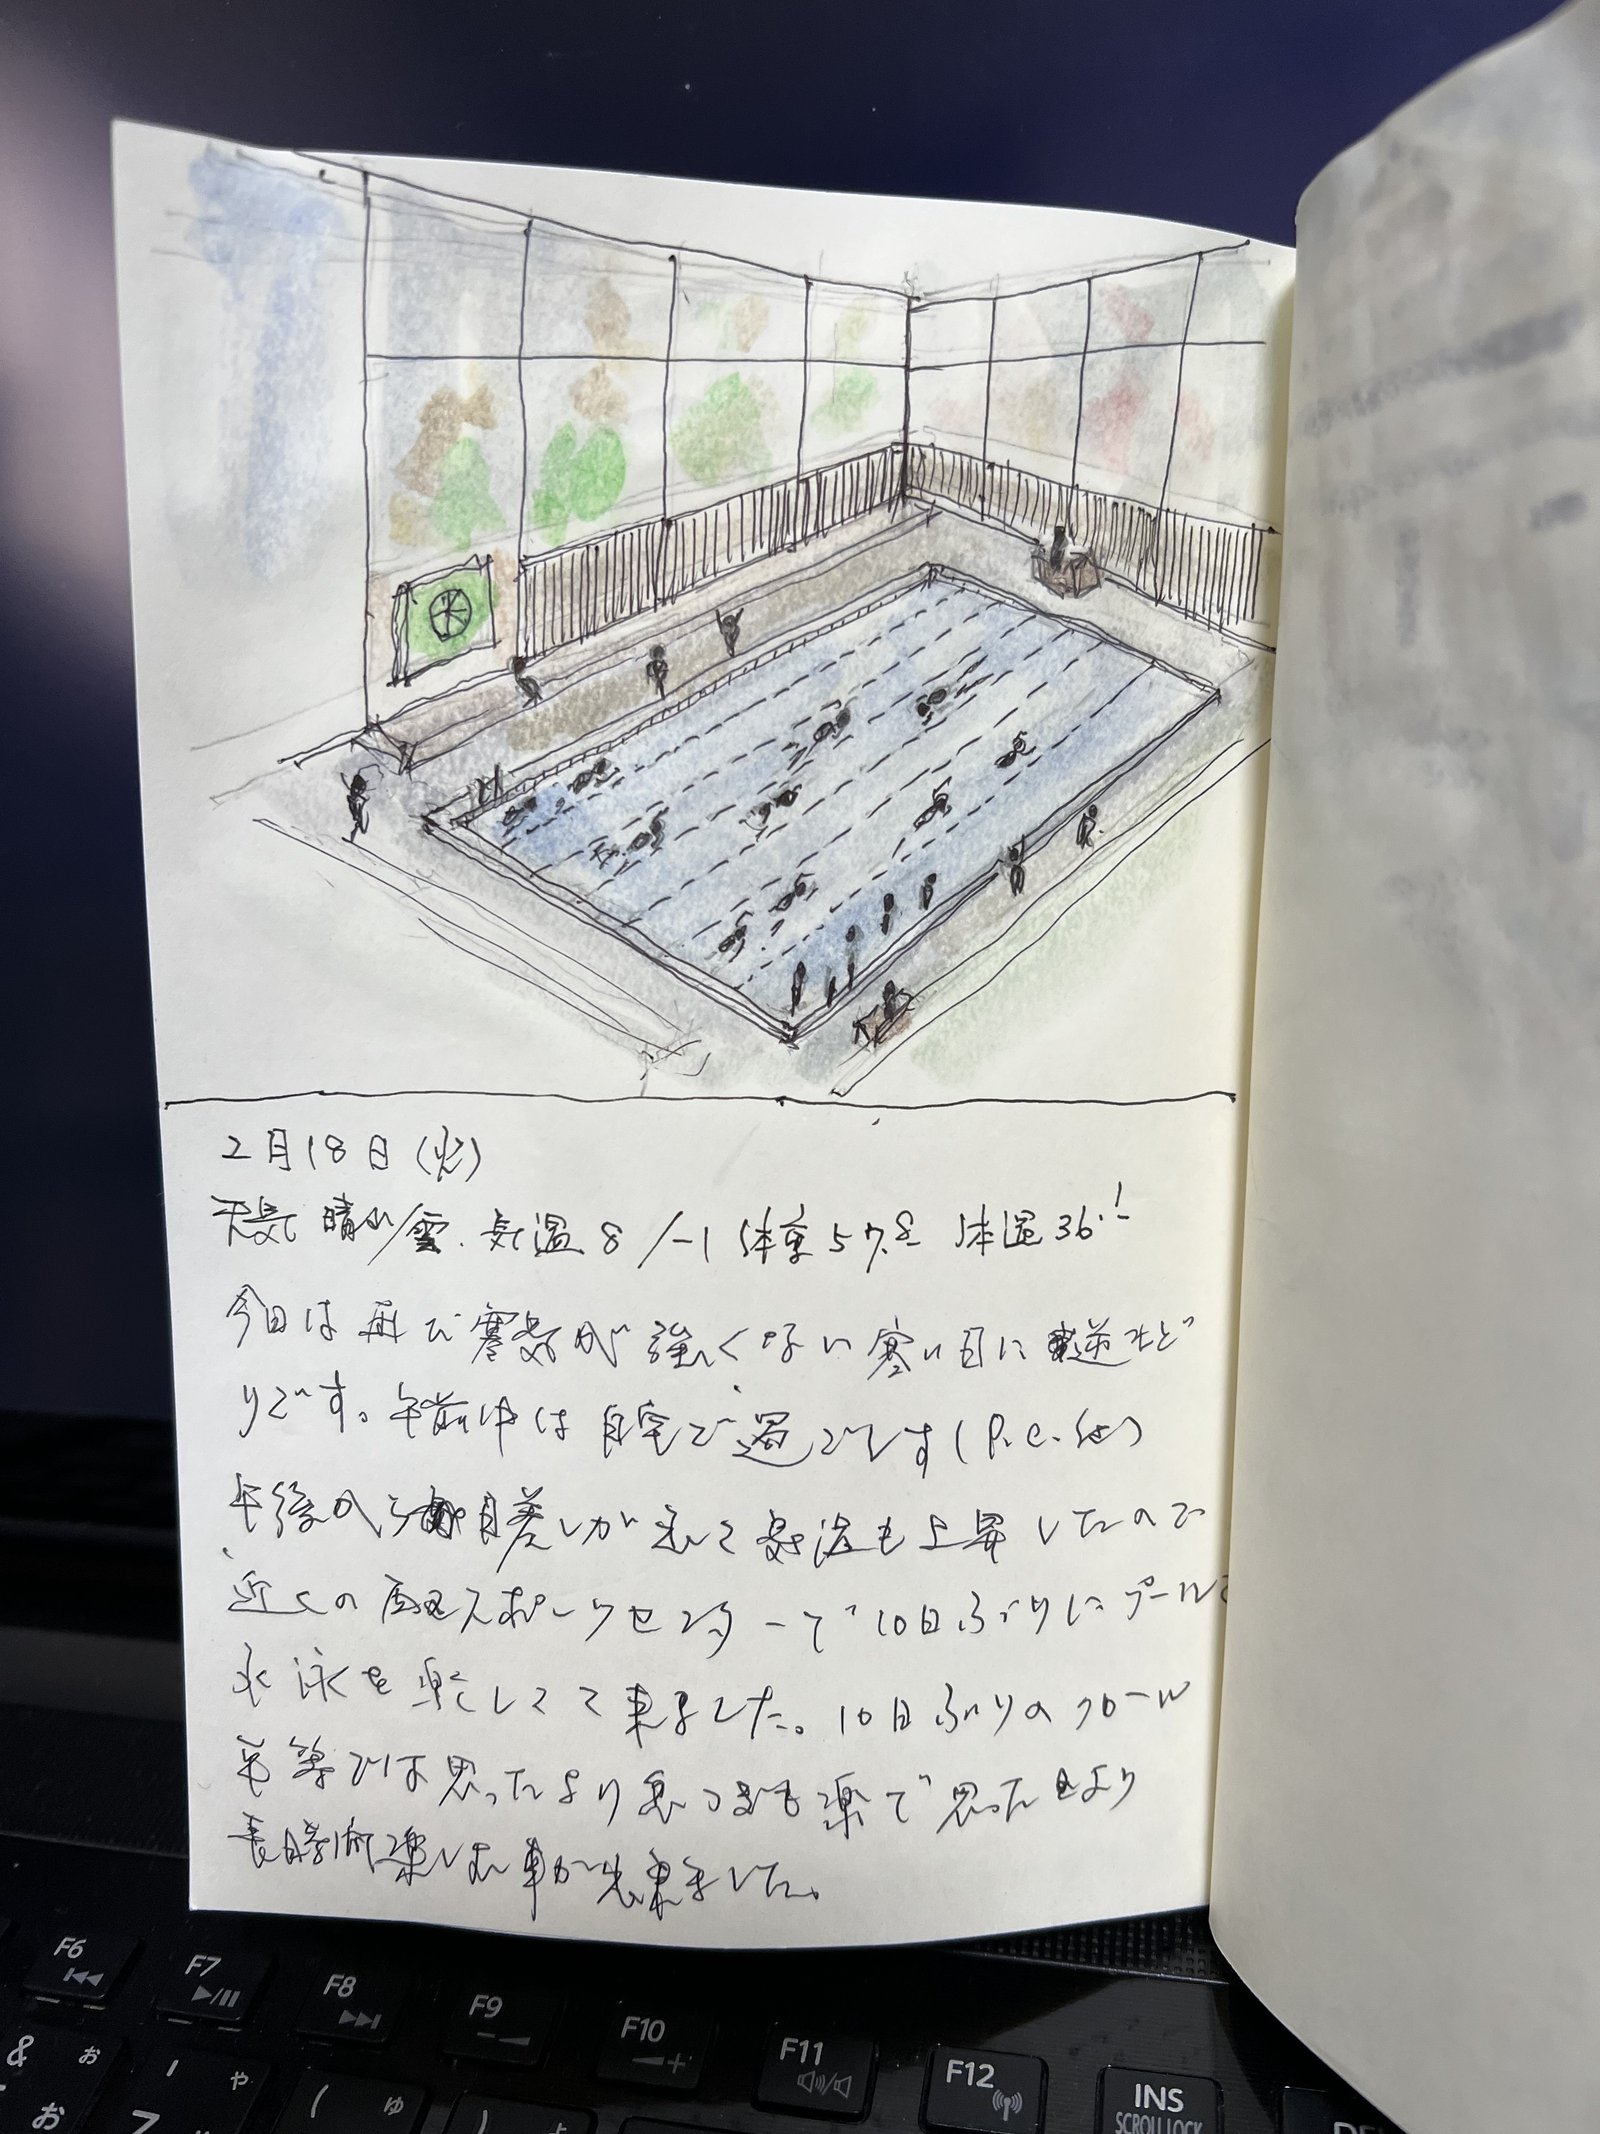 2月18日(火)
天気 晴れ/雲. 気温 8/-1 体重57.8 体温36.1
今日は再び寒気が強くない寒い日に逆もど
りです。午前中は自宅で過ごです(P.C.他)
午後から日差しが出て気温も上昇したので
近くの西区スポーツセンターで10日ぶりにプールで
水泳を楽しくて来ました。10日ぶりのクロール
も等では思ったより息つぎも楽で思ったより
長時間楽しむ事が出来ました。
F6
F7
F8
F9
F10
F11
F12
INS
SCROLL LOCK
& お
お
ゃ
7
( ゅ
)